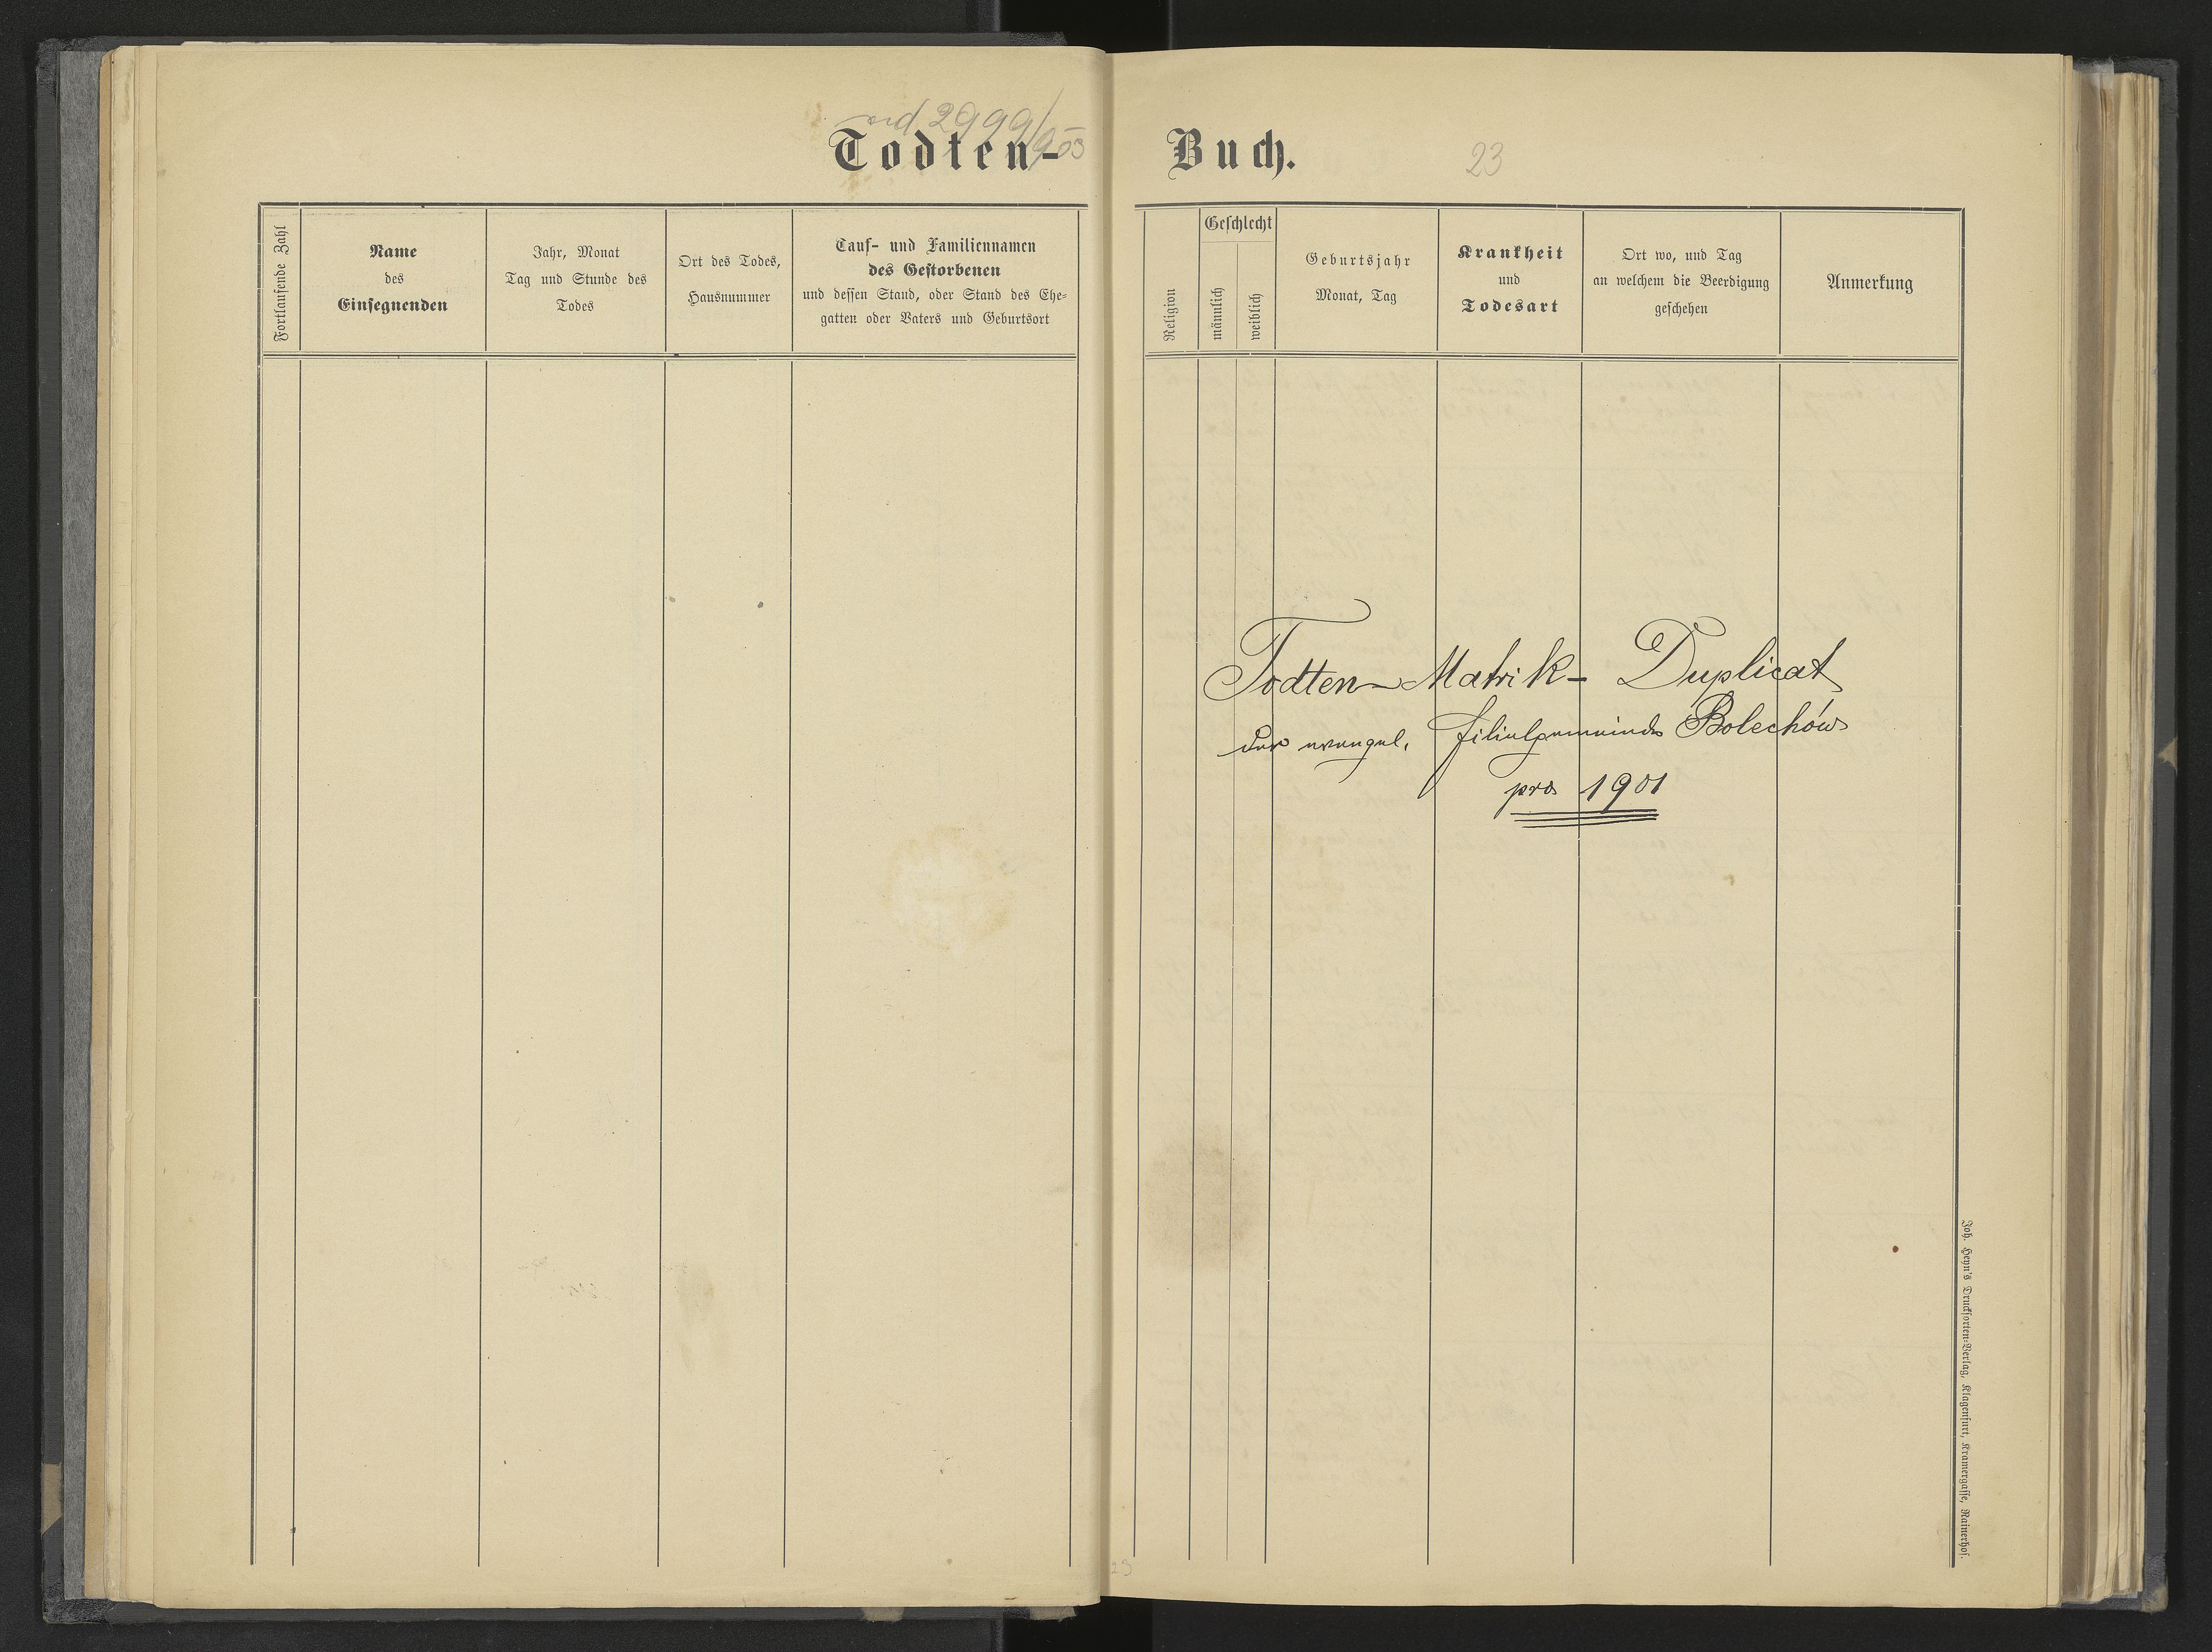 ad 2999/903
Todten-
Fortlaufende Zahl
Name
des
Einsegnenden
Jahr, Monat
Tag und Stunde des
Todes
Ort des Todes,
Hausnummer
Tauf- und Familiennamen
des Gestorbenen
und dessen Stand, oder Stand des Ehe-
gatten oder Vaters und Geburtsort
Buch.
23
Religion
Geschlecht
männlich
weiblich
Geburtsjahr
Monat, Tag
Krankheit
und
Todesart
Ort wo, und Tag
an welchem die Beerdigung
geschehen
Anmerkung
Todten-Matrik-Duplicat
der evangel. Filialgemeinde Bolechów
pro 1901
Joh. Heyn's Drucksorten-Verlag, Klagenfurt, Kramergasse, Rainerhof.
23